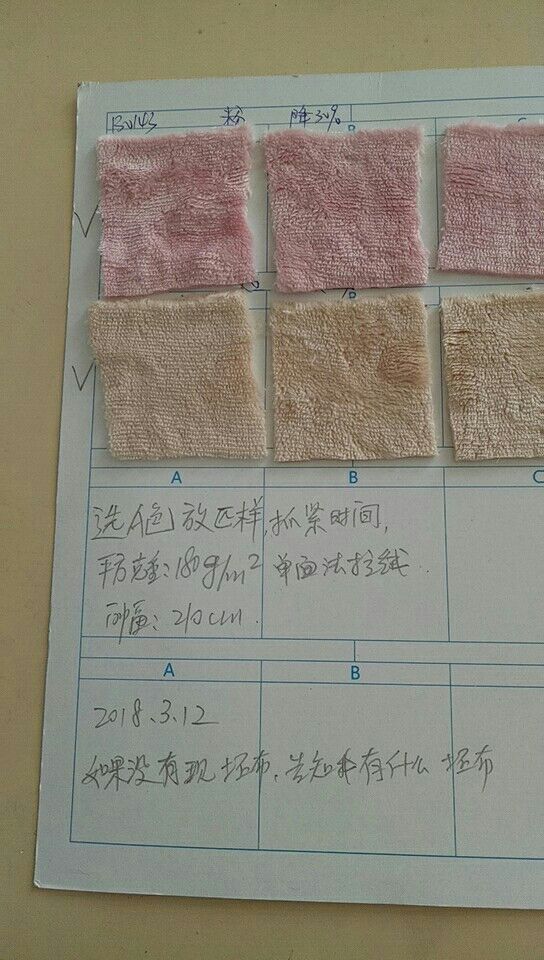 B0143 粉 降30%
B
B
A B C
选A色放匹样,抓紧时间,
平方克重:180g/m² 单面法拉绒.
门幅:210cm.
A B
2018.3.12
如果没有现坯布,告知我有什么坯布